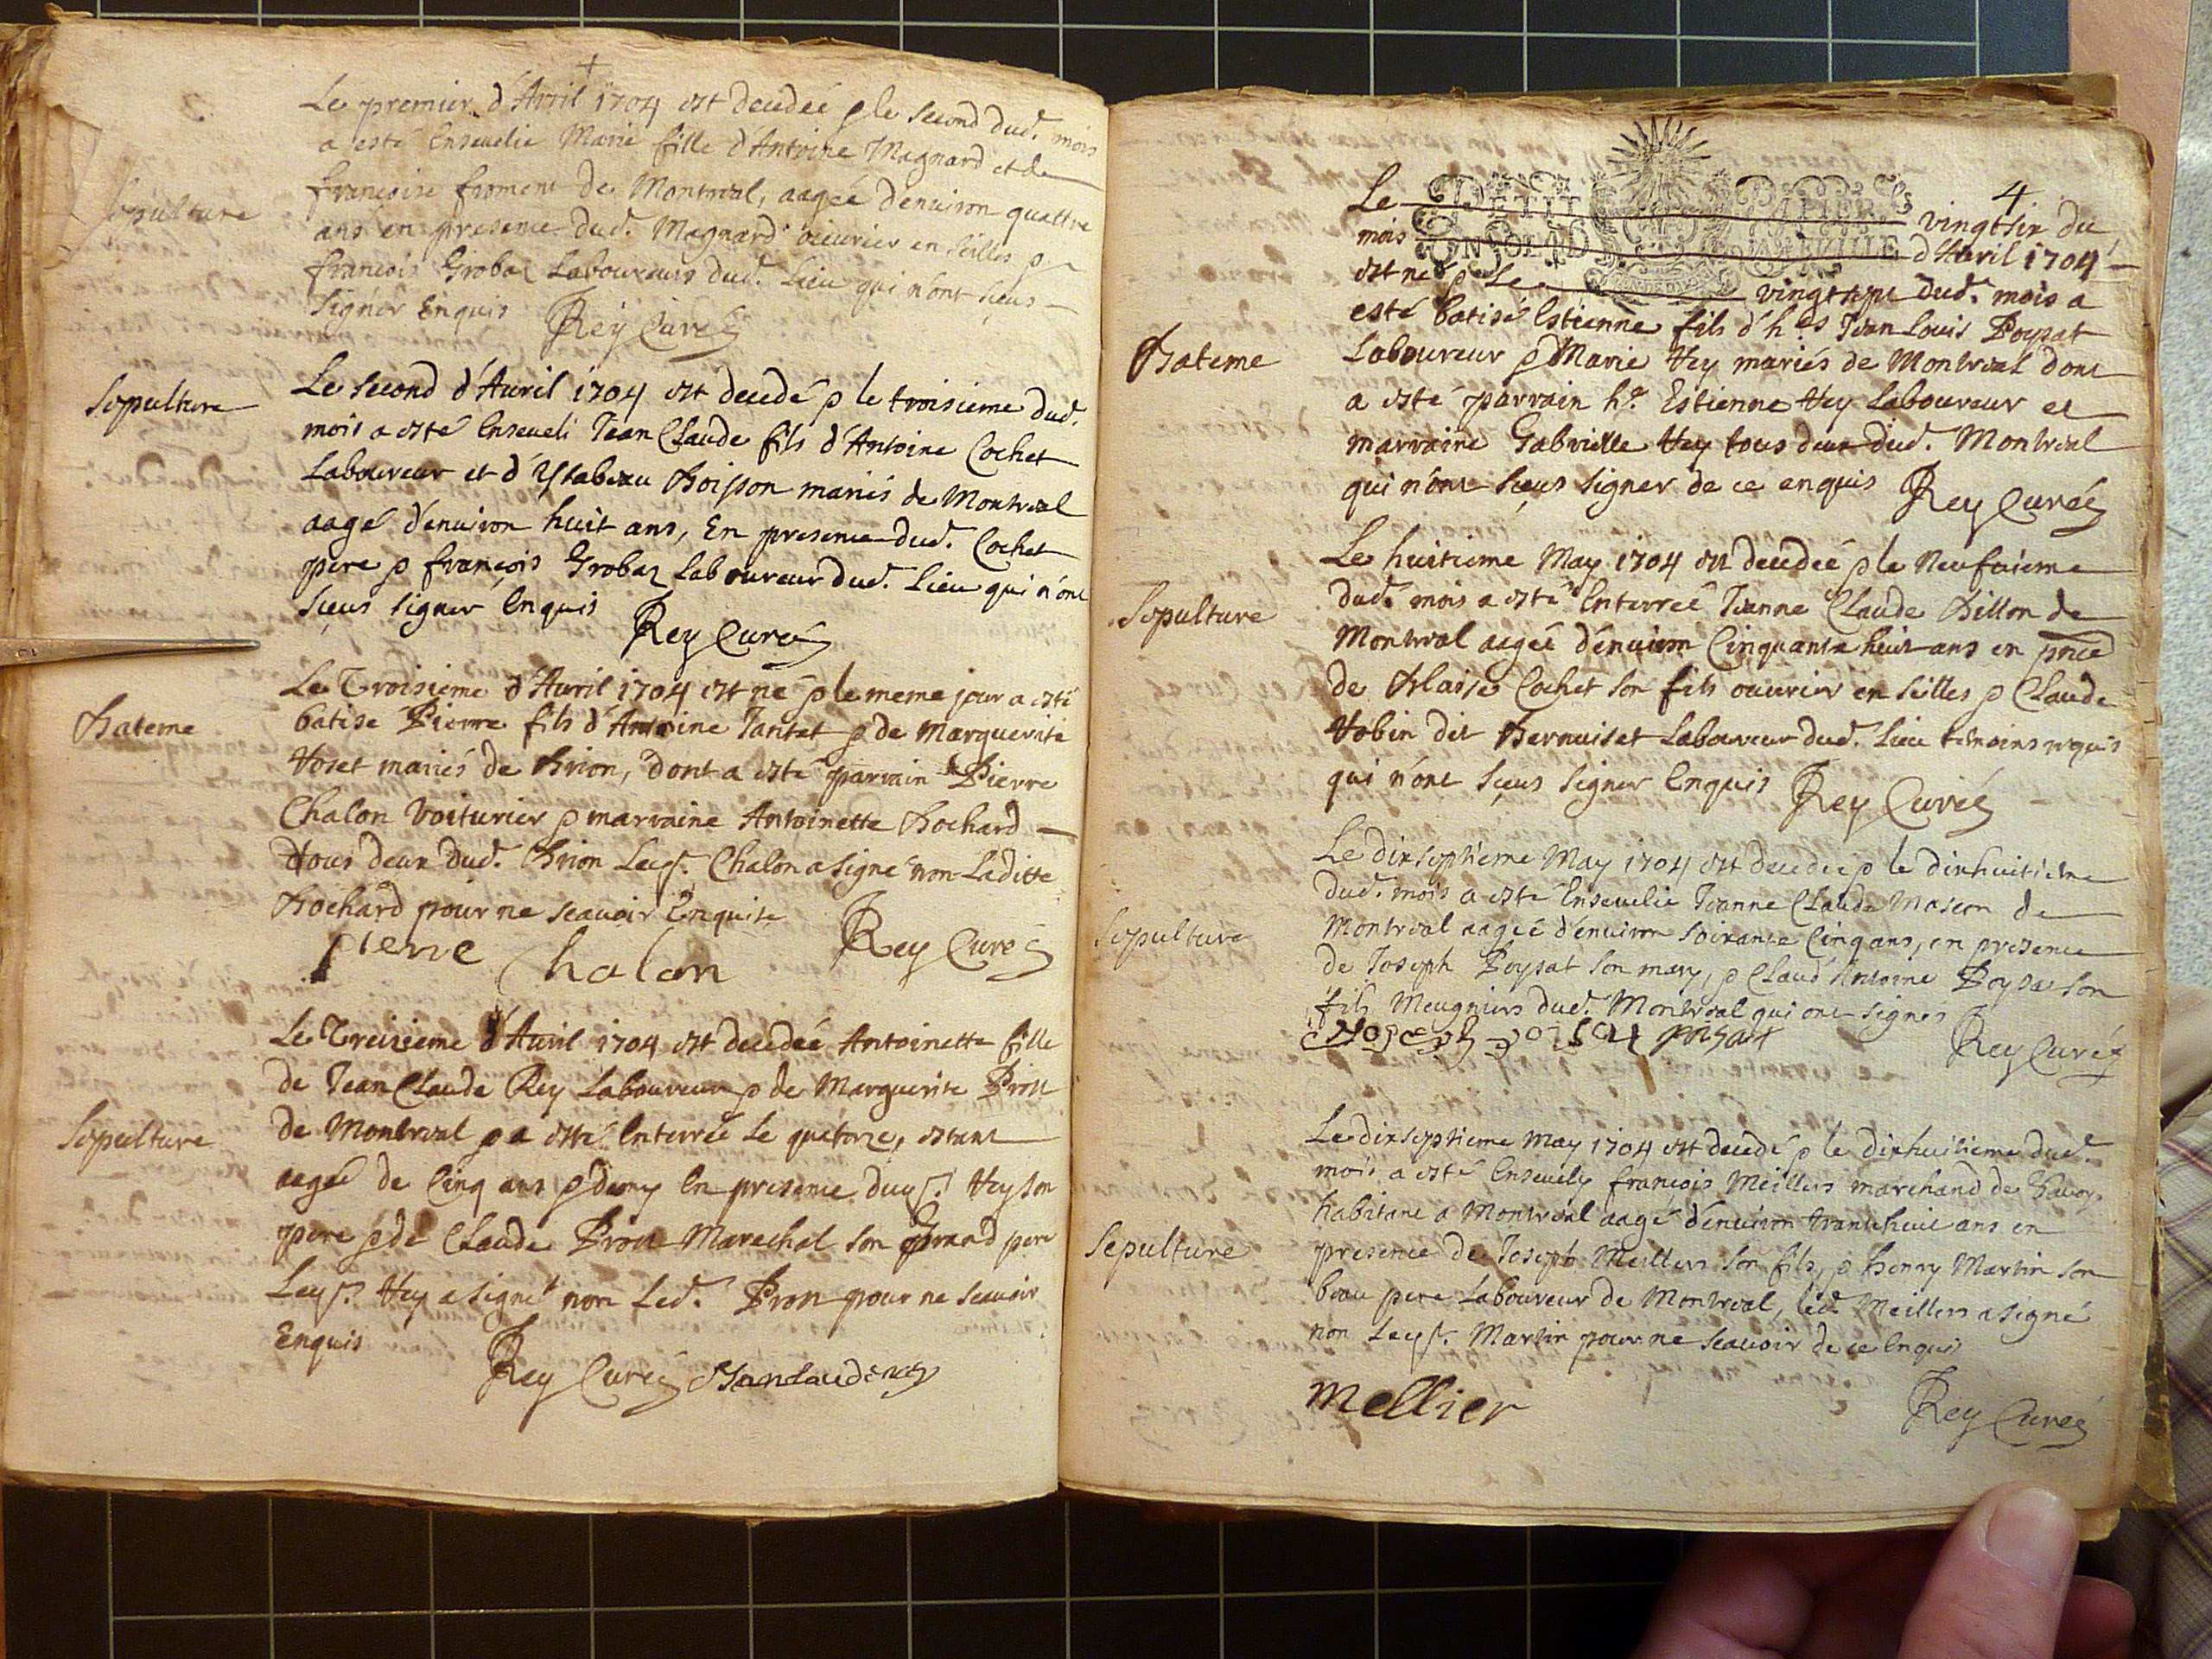 Sepulture
Le premier d'Avril 1704 est decedeé & le second dud. mois
a esté Ensevelie Marie fille d'Antoine Magnard et de
francoise froment de Montreal, aageé d'environ quattre
ans en presence dud. Magnard ouvrier en seilles &
francois Grobaz Laboureurs dud. Lieu qui n'ont sçeus
signer Enquis Rey Curé
Sepulture
Le second d'Avril 1704 est decedé & le troisieme dud.
mois a esté Enseveli Jean Claude fils d'Antoine Cochet
Laboureur et d'Ysabeau Boisson mariés de Montreal
aagé d'environ huit ans, En presence dud. Cochet
pere & françois Grobaz Laboureur dud. Lieu qui n'ont
sçeus signer Enquis Rey Curé
Bateme
Le Troisieme d'Avril 1704 est né & le meme jour a esté
batisé Pierre fils d'Antoine Tantet & de Marguerite
mariés de Brion, dont a esté parrain Pierre
Chalon Voiturier & marraine Antoinette Bochard
Tous deux dud. Brion Leq. Chalon a signé non Laditte
Bochard pour ne scavoir Enquise Rey Curé
pierre Chalon
Sepulture
Le Treizieme d'Avril 1704 est decedeé Antoinette fille
de Jean Claude Rey Laboureur & de Marguerite
de Montreal & a esté Enterreé Le quatorze, estant
aageé de Cinq ans & demy En presence duq. Rey son
pere & de Claude Marechal son Grand pere
Leq. Rey a signé non Led. pour ne scavoir
Enquis
Rey Curé
4
PETIT PAPIER
Le vingtsix du
mois d'Avril 1704
est né & Le vingt sept dud. mois a
Bateme
esté batisé Estienne fils d'h.es Jean Louis Poysat
Laboureur & Marie Rey mariés de Montreal dont
a esté parrain h.e Estienne Rey Laboureur et
marraine Gabrielle Rey tous deux dud. Montreal
qui n'ont sçeus signer de ce enquis Rey Curé
Sepulture
Le huitieme May 1704 est decedeé & le Neufvieme
dud. mois a esté Enterreé Jeanne Claude Billon de
Montreal aageé d'environ Cinquante huit ans en pnce
de Blaise Cochet son fils ouvrier en seilles & Claude
Robin dit Laboureur dud. Lieu temoins requis
qui n'ont sçeus signer Enquis Rey Curé
Sepulture
Le dixseptieme May 1704 est decedeé & le dixhuitieme
dud. mois a esté Ensevelie Jeanne Claude Mascon de
Montreal aageé d'environ soixante Cinq ans, en presence
de Joseph Poysat son mary, & Claud'Antoine Poysat son
fils Meugniers dud. Montreal qui ont signés
Rey Curé
Sepulture
Le dixseptieme May 1704 est decedé & le dixhuitieme dud.
mois a esté Ensevely francois Meillier marchand de
habitant a Montreal aagé d'environ trante huit ans en
presence de Joseph Meillier son fils, & henry Martin son
beau pere Laboureur de Montreal, led. Meillier a signé
non Leq. Martin pour ne scavoir de ce Enquis
mellier Rey Curé